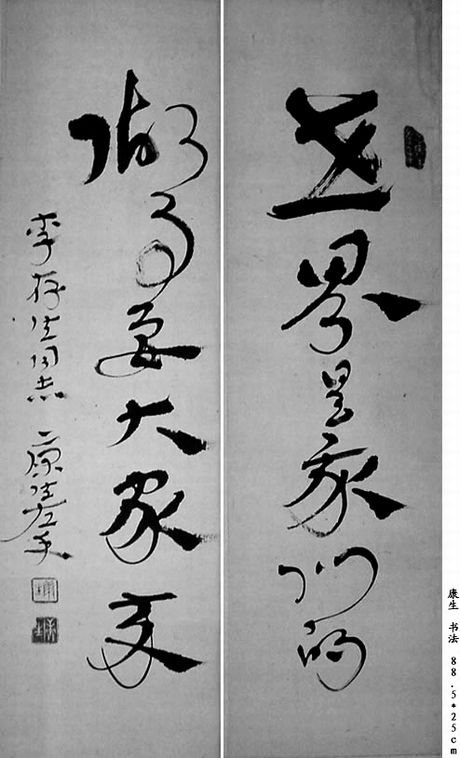 世界是我们的
做事要大家来
李存生同志 康生左手
康生 书法 88.5*25cm